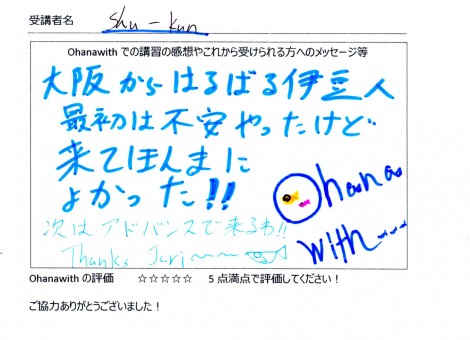 受講者名 Shu-kun
Ohanawith での講習の感想やこれから受けられる方へのメッセージ等
大阪からはるばる伊豆人
最初は不安やったけど
来てほんまに
よかった!!
Ohana
with~~~
次はアドバンスで来るわ!!
Thanks Juri~~~
Ohanawith の評価 ☆☆☆☆☆ 5 点満点で評価してください!
ご協力ありがとうございました!